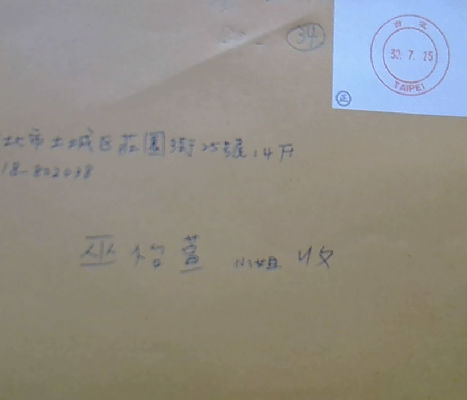 34
台北
30. 7. 25
TAIPEI
正
北市土城区莊園街25號14F
18-802038
巫袷萱 小姐 收